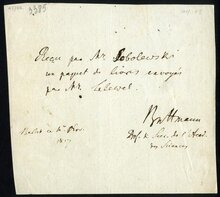 2385
Reçu par Mr. Sobolewski
un paquet de livres envoyés
par Mr. Lelewel.
Buttmann
Berlin ce
Prof. & Secr. de l'Acad.
des Sciences